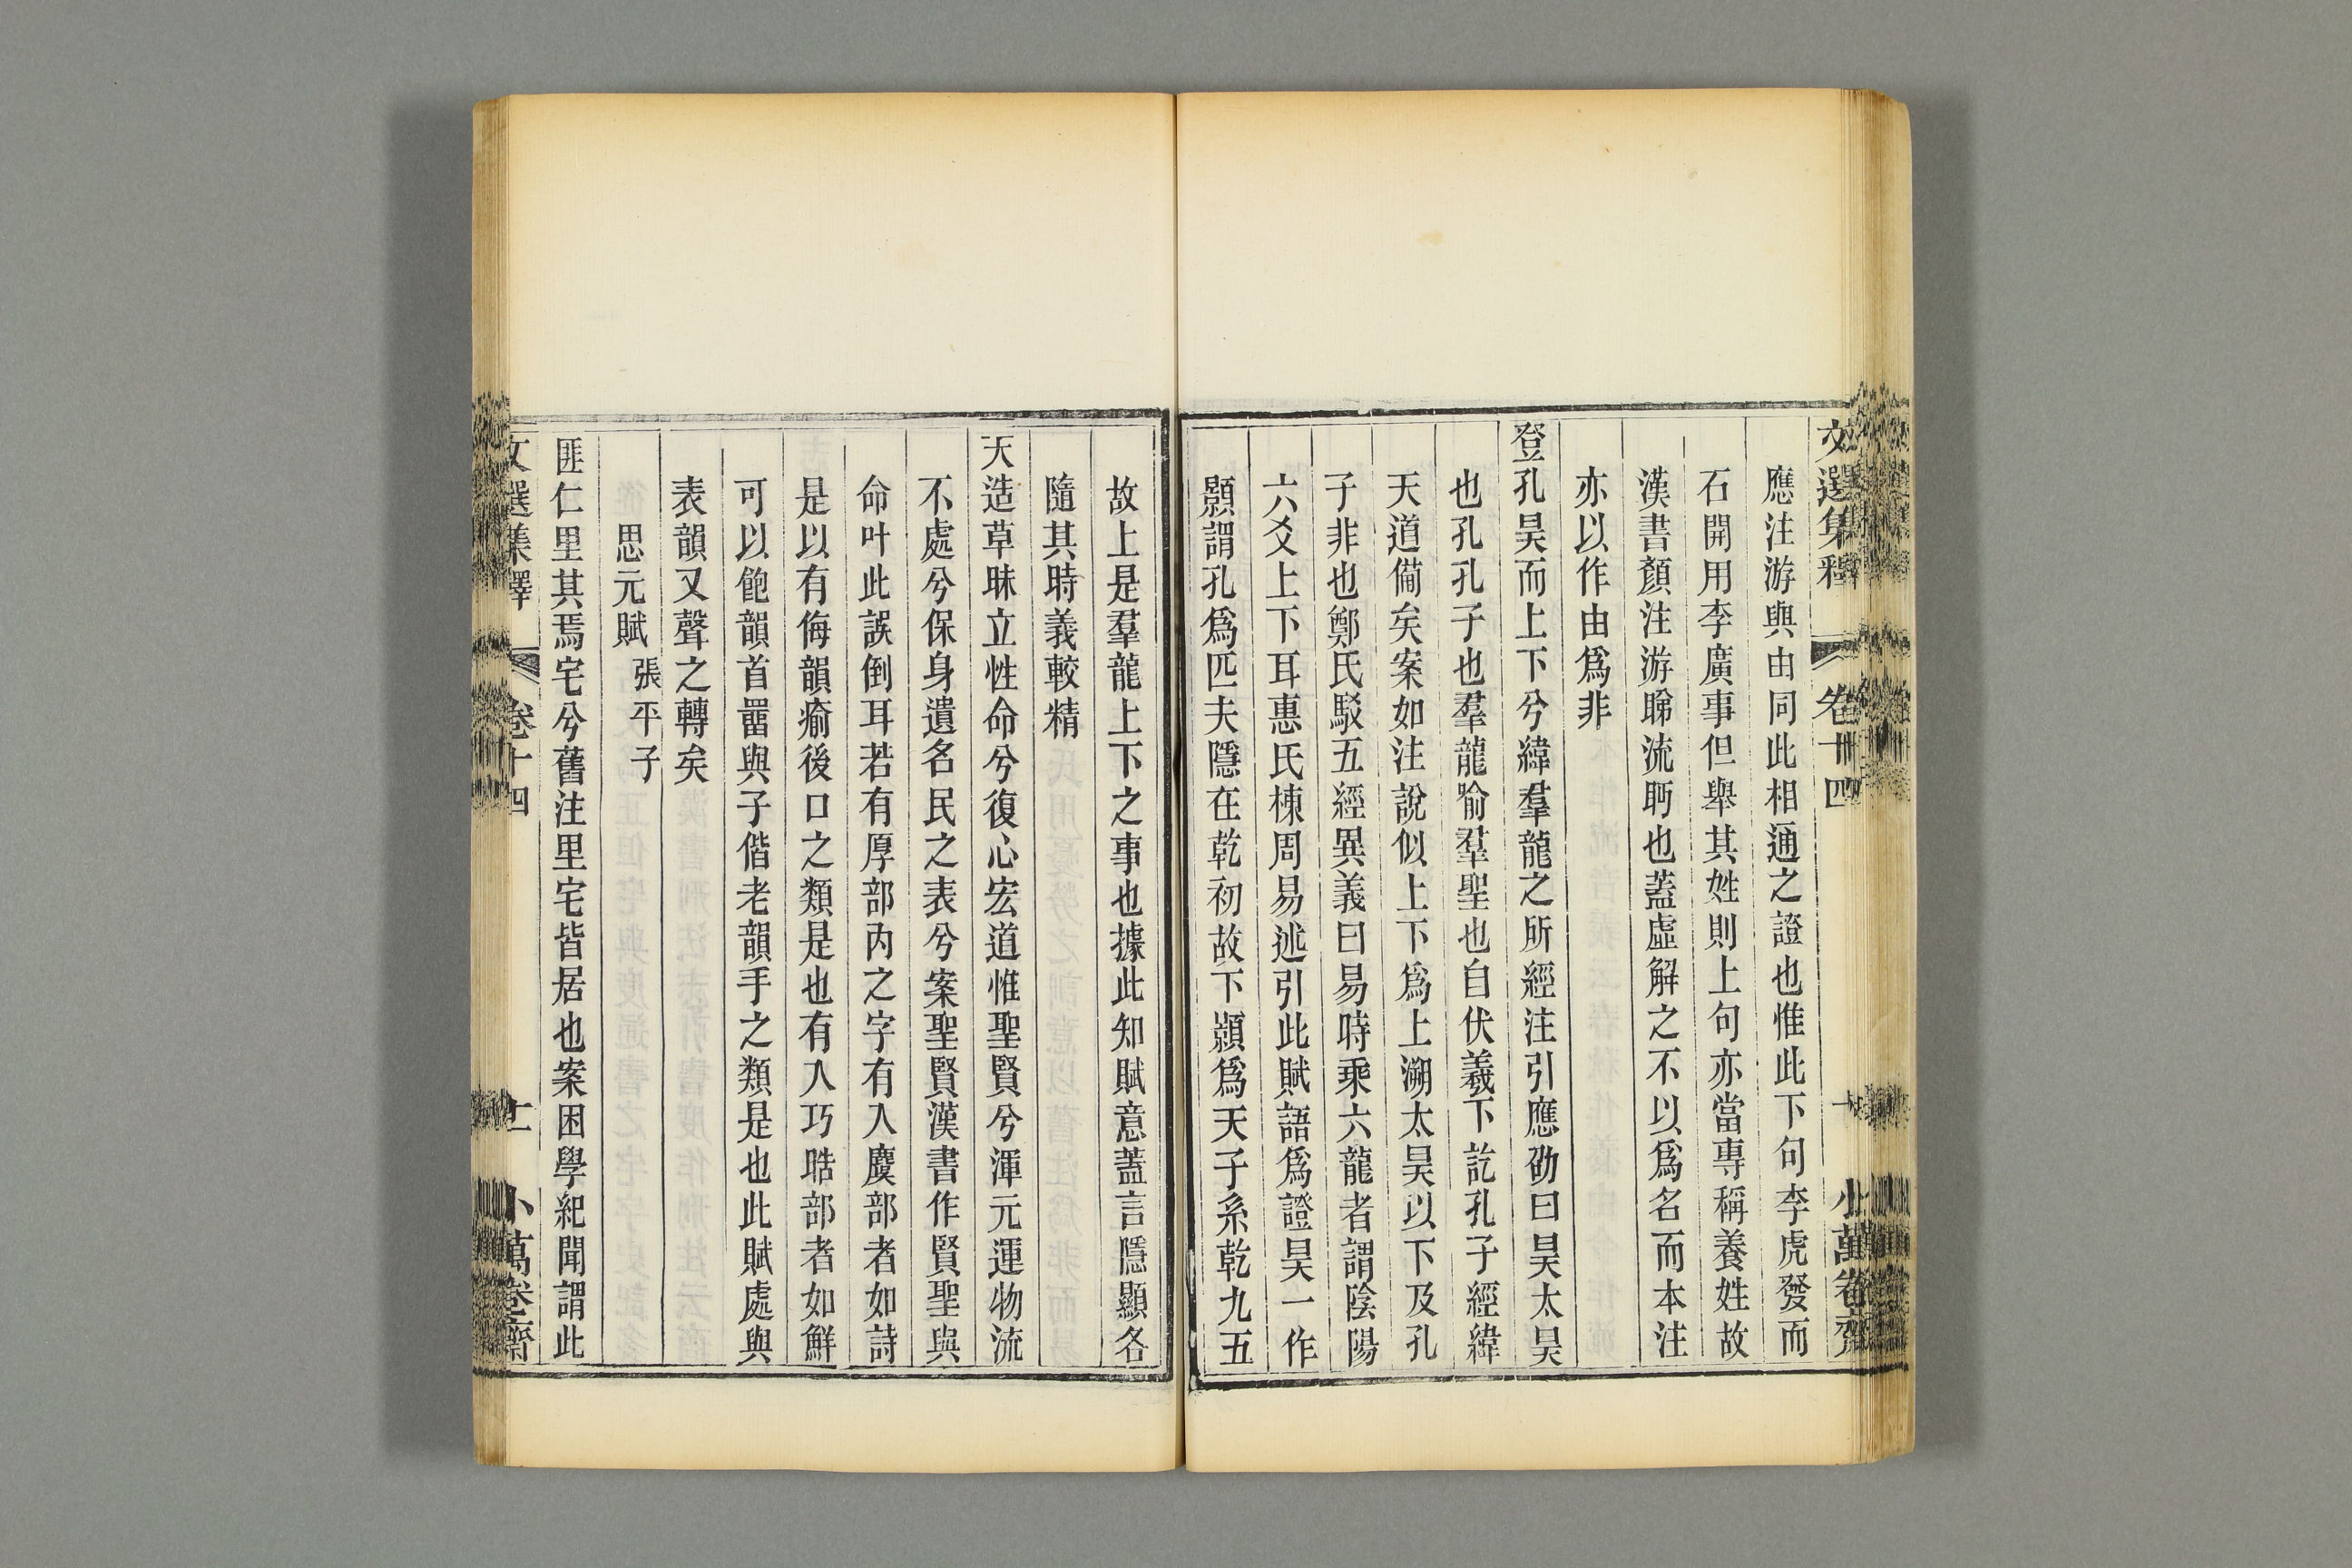 文選集釋 卷十四 十 小萬卷齋
應注游與由同此相通之證也惟此下句李虎發而
石開用李廣事但舉其姓則上句亦當專稱養姓故
漢書顏注游睇流眄也蓋虛解之不以爲名而本注
亦以作由爲非
登孔昊而上下兮緯羣龍之所經注引應劭曰昊太昊
也孔孔子也羣龍喻羣聖也自伏羲下訖孔子經緯
天道備矣案如注說似上下爲上溯太昊以下及孔
子非也鄭氏駁五經異義曰易時乘六龍者謂陰陽
六爻上下耳惠氏棟周易述引此賦語爲證昊一作
顥謂孔爲匹夫隱在乾初故下顥爲天子系乾九五
故上是羣龍上下之事也據此知賦意蓋言隱顯各
隨其時義較精
天造草昧立性命兮復心宏道惟聖賢兮渾元運物流
不處兮保身遺名民之表兮案聖賢漢書作賢聖與
命叶此誤倒耳若有厚部內之字有入麌部者如詩
是以有侮韻瘉後口之類是也有入巧晧部者如鮮
可以飽韻首罶與子偕老韻手之類是也此賦處與
表韻又聲之轉矣
思元賦 張平子
匪仁里其焉宅兮舊注里宅皆居也案困學紀聞謂此
文選集釋 卷十四 十一 小萬卷齋